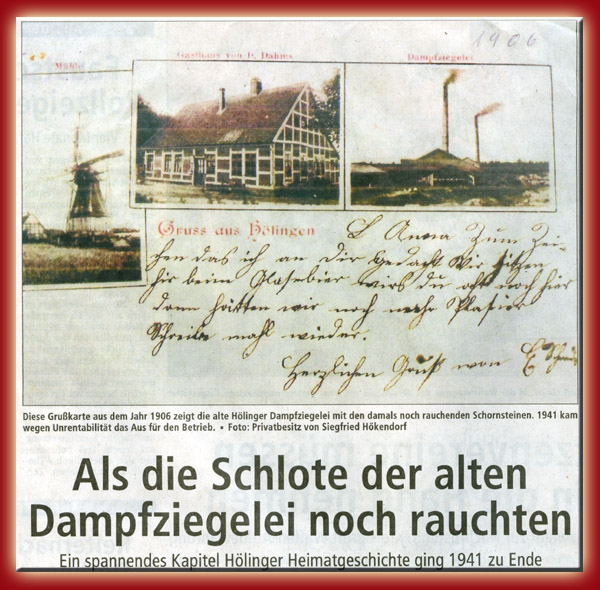 1906
Mühle
Gasthaus von E. Dahms
Dampfziegelei
Gruss aus Hölingen
L Anna Zum Zei-
chen das ich an Dir Gedacht Wir sitzen
hir beim Glase bier wirs du oft noch hier
dann hätten wir noch mehr Plasier
Schreibe mahl wieder.
Herzlichen Gruß von E
Diese Grußkarte aus dem Jahr 1906 zeigt die alte Hölinger Dampfziegelei mit den damals noch rauchenden Schornsteinen. 1941 kam
wegen Unrentabilität das Aus für den Betrieb. ▪ Foto: Privatbesitz von Siegfried Hökendorf
Als die Schlote der alten
Dampfziegelei noch rauchten
Ein spannendes Kapitel Hölinger Heimatgeschichte ging 1941 zu Ende